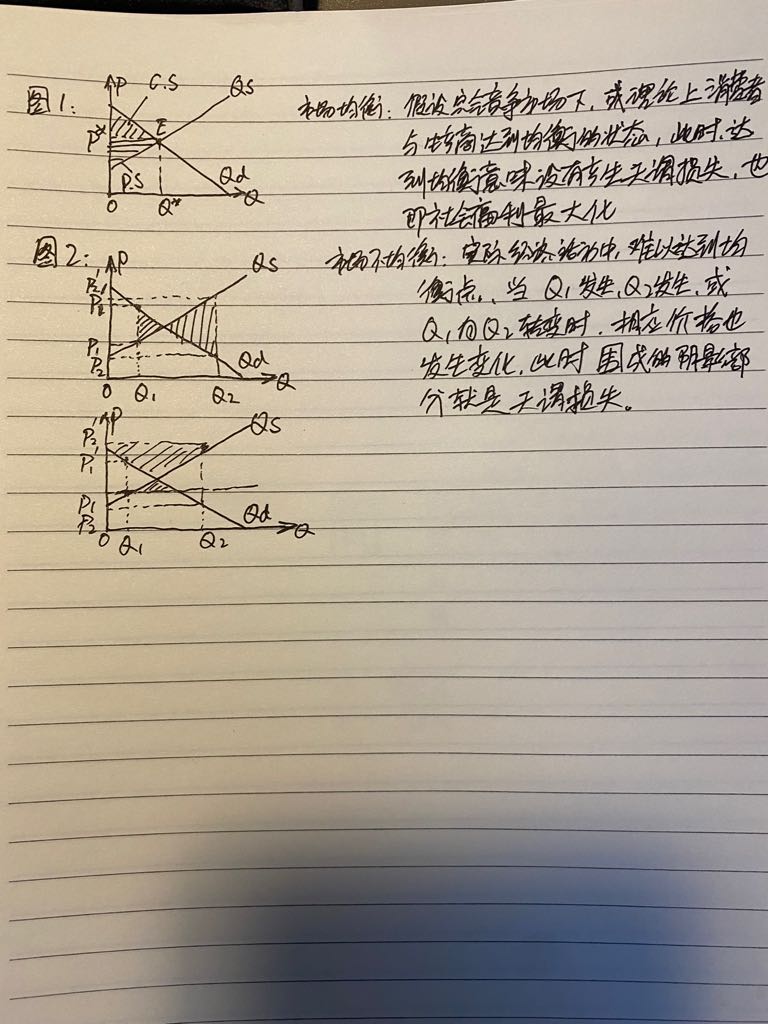 图1:
P
C.S
QS
P*
E
P.S
Qd
O
Q*
Q
市场均衡: 假设完全竞争市场下, 或理论上消费者
与生产商达到均衡的状态, 此时, 达
到均衡意味没有产生无谓损失, 也
即社会福利最大化
图2:
P
QS
P2'
P1'
P1
P2
Qd
O
Q1
Q2
Q
市场不均衡: 实际经济活动中, 难以达到均
衡点, 当 Q1发生, Q2发生, 或
Q1向Q2转变时, 相应价格也
发生变化, 此时围成的阴影部
分就是无谓损失。
P
QS
P2'
P1'
P1
P2
Qd
O
Q1
Q2
Q